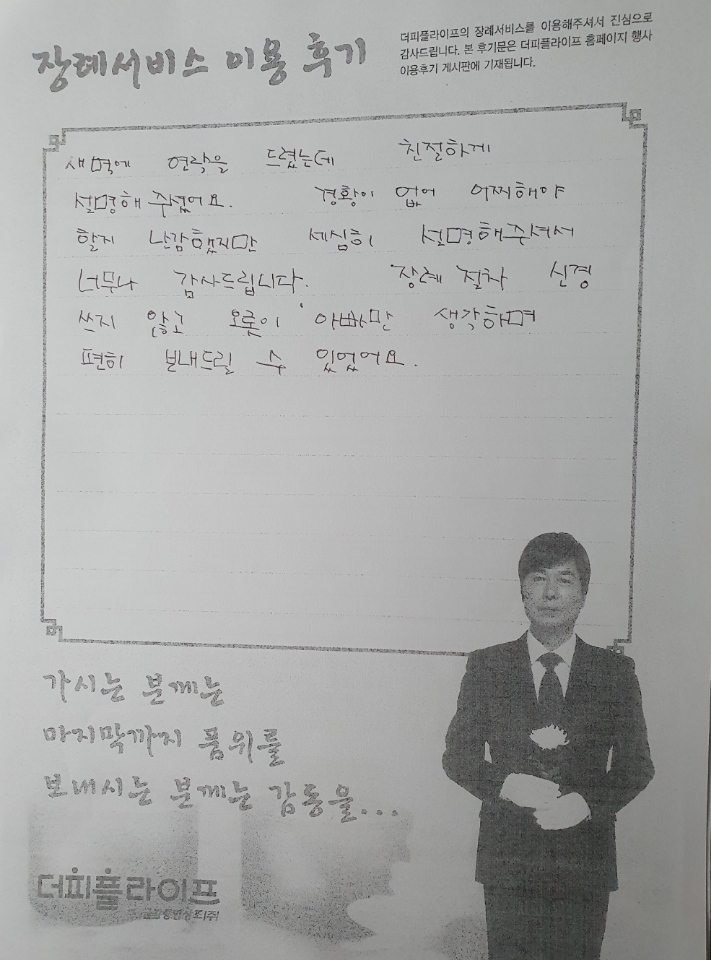 장례서비스 이용 후기
더피플라이프의 장례서비스를 이용해주셔서 진심으로
감사드립니다. 본 후기문은 더피플라이프 홈페이지 행사
이용후기 게시판에 기재됩니다.
새벽에 연락을 드렸는데 친절하게
설명해 주셨어요. 경황이 없어 어찌해야
할지 난감했지만 세심히 설명해주셔서
너무나 감사드립니다. 장례 절차 신경
쓰지 않고 오롯이 아빠만 생각하며
편히 보내드릴 수 있었어요.
가시는 분께는
마지막까지 품위를
보내시는 분께는 감동을...
더피플라이프